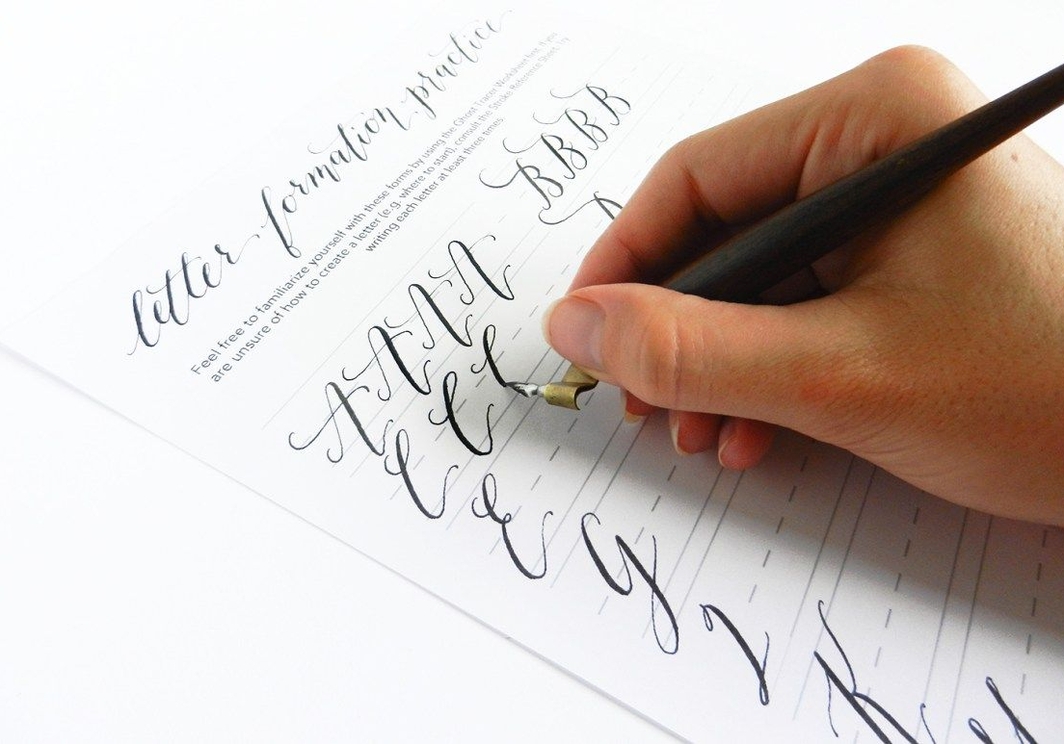 letter formation practice
Feel free to familiarize yourself with these forms by using the Ghost Tracer Worksheet first. If you
are unsure of how to create a letter (e.g. where to start), consult the Stroke Reference Sheet. Try
writing each letter at least three times.
A A A A B B B B
C C C
E
G
I
K